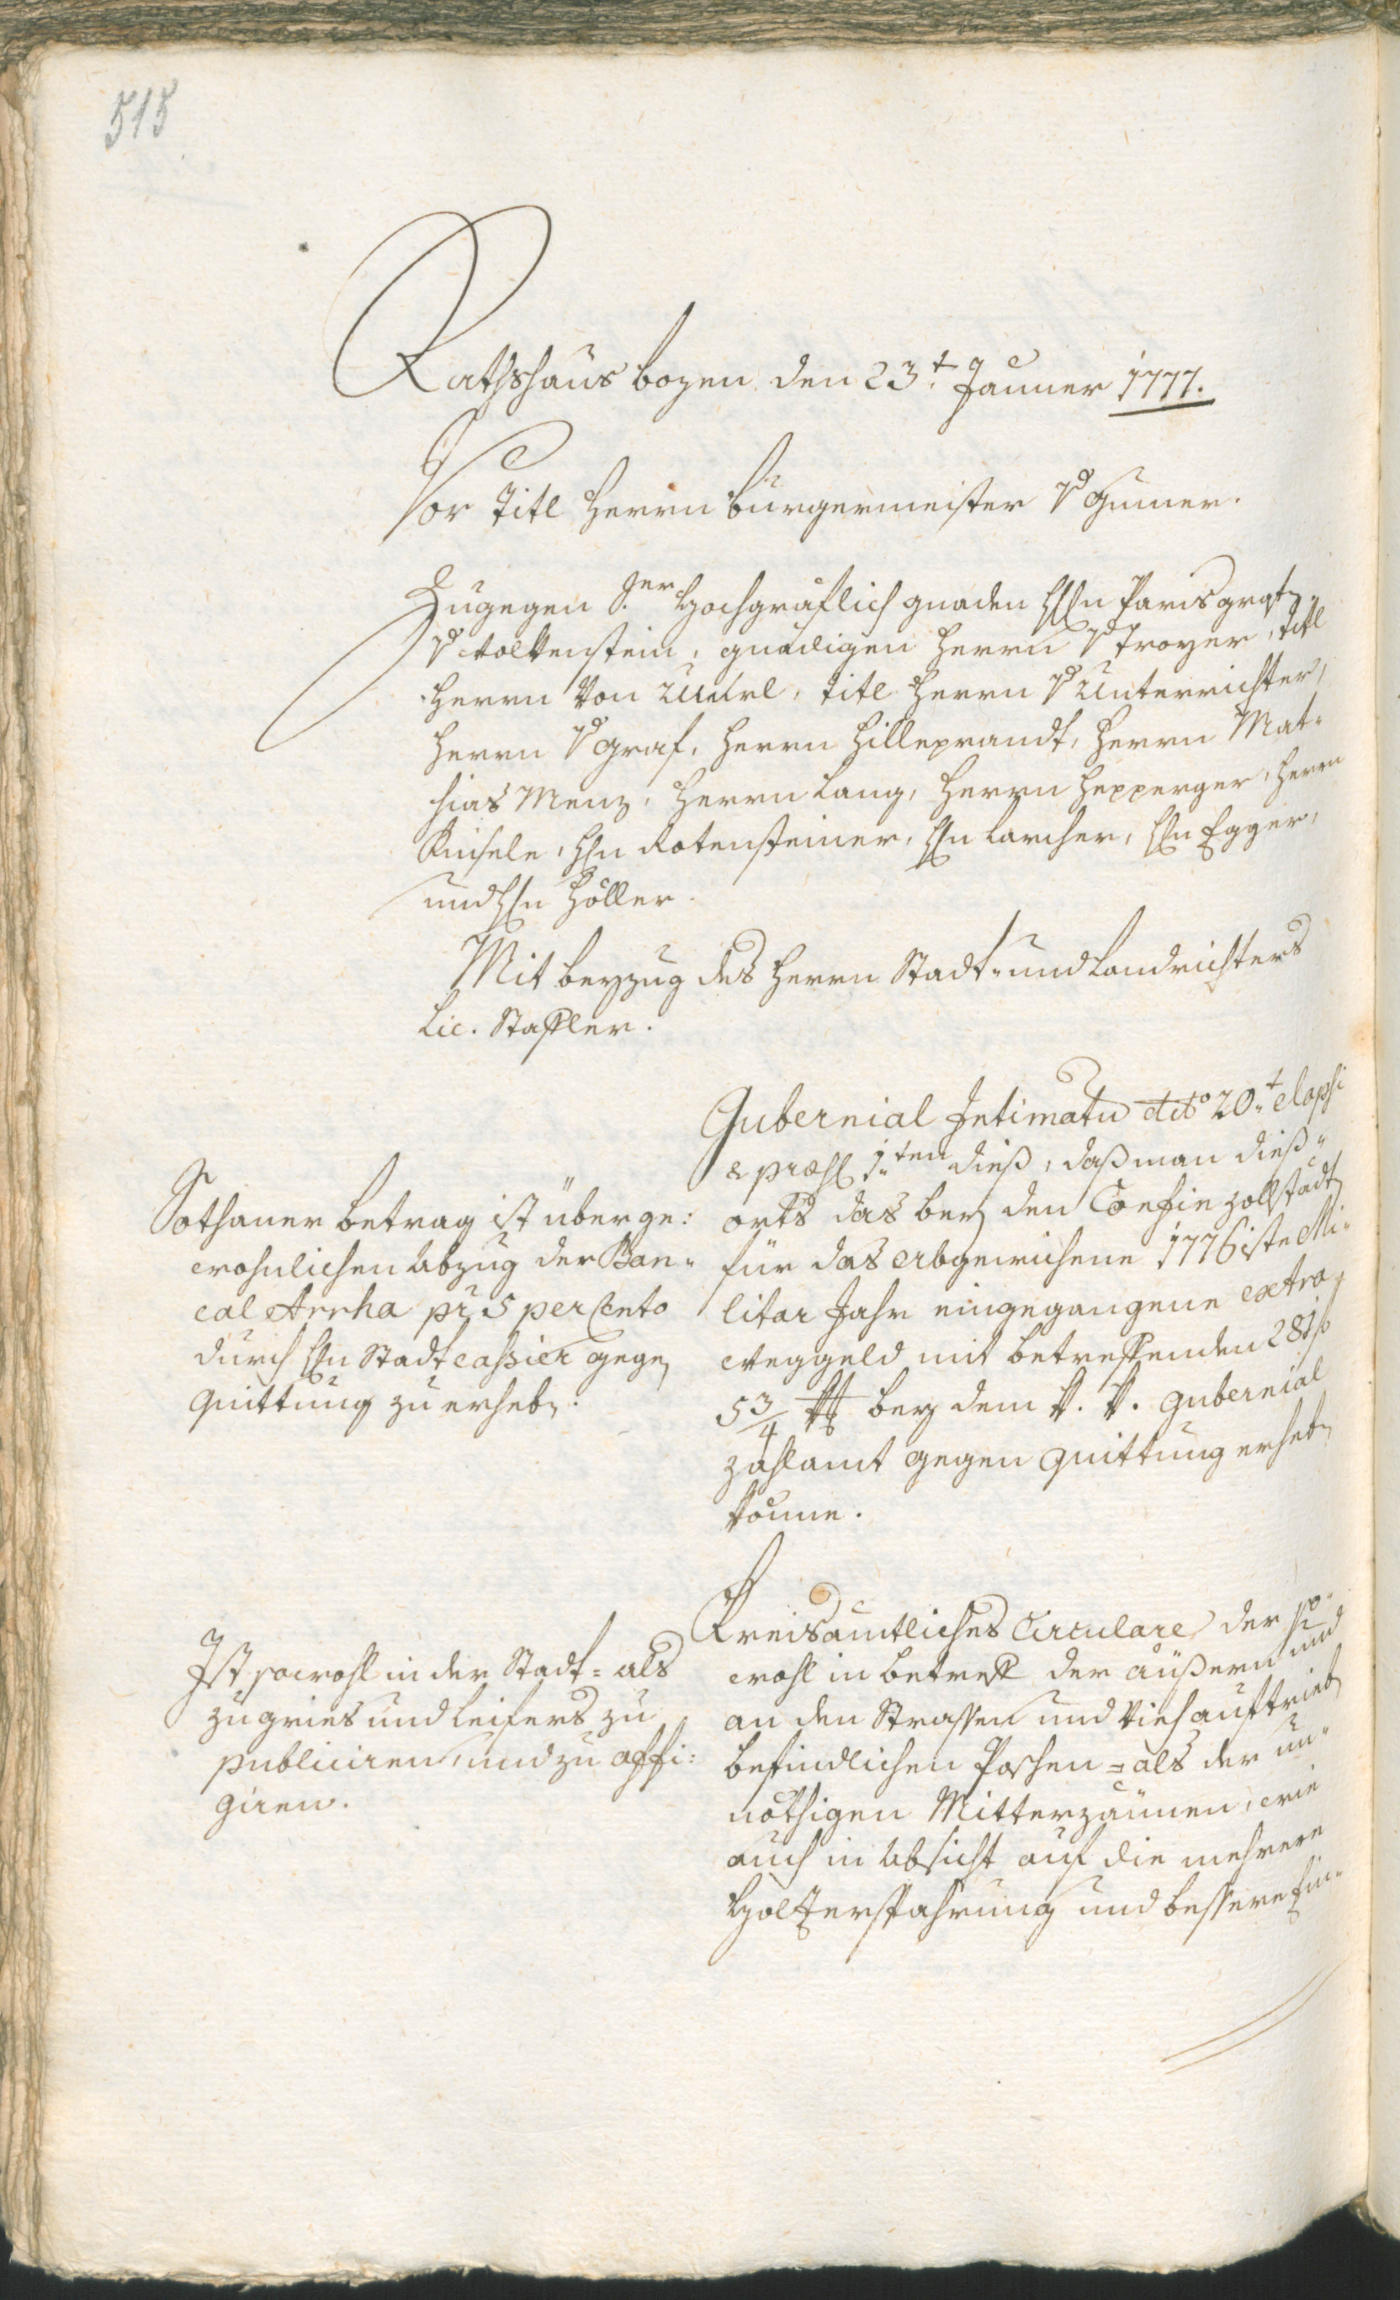 515
Rathshaus bozen den 23.t Jänner 1777.
Vor Titl Herrn burgermeister v gumer.
Zugegen S.er Hochgräflich gnaden H. Paris graf
v Wolkenstein, gnädigen Herrn v Troyer, titl
Herrn von Zallinger, titl Herrn v Unterrichter,
Herrn v graf, Herrn Hilleprandt, Herrn Mat-
hias Menz, Herrn Lang, Herrn Hepperger, Herrn
Kinsele, Hn Rotensteiner, Hn Larcher, Hn Egger,
und Hn Höller.
Mit beyzug des Herrn Stadt- und Landrichters
Lic. Stafler.
Gubernial Intimatu dto 20.t elapsi
& præs 1.ten dieß, daß man dieß-
orts das bey den Confin zollstädten
für das abgewichene 1776iste Mi-
litar Jahr eingegangene extra
weggeld mit betreffenden 281 f
5 3/4 xr bey dem k. k. gubernial
zahlamt gegen quittung erheben
könne.
Sothaner betrag ist über ge-
wohnlichen abzug der Ban-
cal Arrha pr 5 per Cento
durch Hn Stadtcassier gegen
quittung zu erheben.
Kreisämtliches Circulare der so-
wohl in betreff der äußern und
an den Strassen und Viehauftrieb
befindlichen Poschen - als der un-
nöthigen Mitterzäunen, wie
auch in Absicht auf die mehrere
Holzersparung und bessere Ein-
Ist sowohl in der Stadt - als
zu gries und Leifers zu
publiciren, und zu affi-
giren.